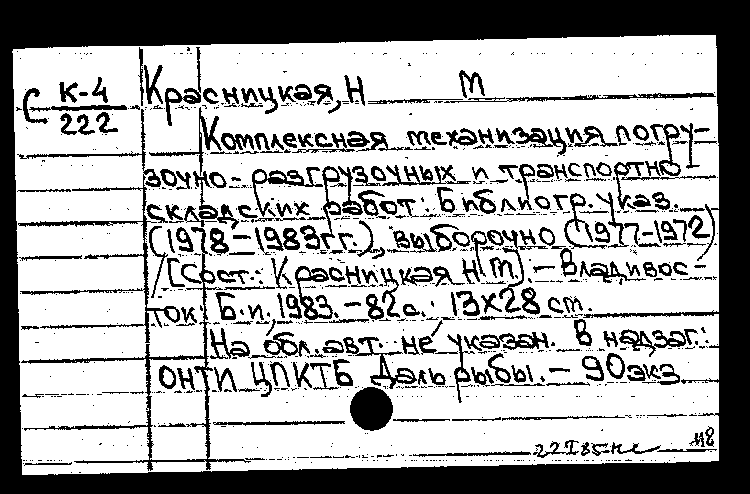 С К-4
222
Красницкая, Н М
Комплексная механизация погру-
зочно-разгрузочных и транспортно-
складских работ: Библиогр. указ.
(1978-1983гг.), выборочно (1977-1972)
/ [Сост.: Красницкая Н.М]. - Владивос-
ток: Б.и., 1983. - 82с. 13х28 ст.
На обл. авт. не указан. В надзаг.:
ОНТИ ЦПКТБ Дальрыбы. - 90экз.
118